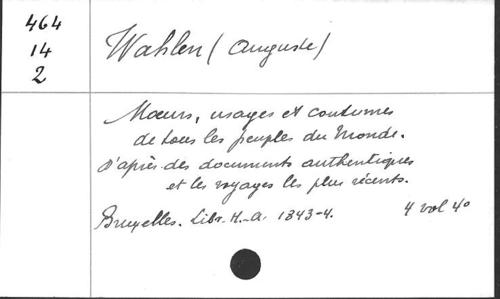 464
14
2
Wahlen (Auguste)
Mœurs, usages et coutumes
de tous les peuples du Monde.
D'après des documents authentiques
et les voyages les plus récents.
Bruxelles. Libr. H.-a. 1843-4. 4 vol 4°